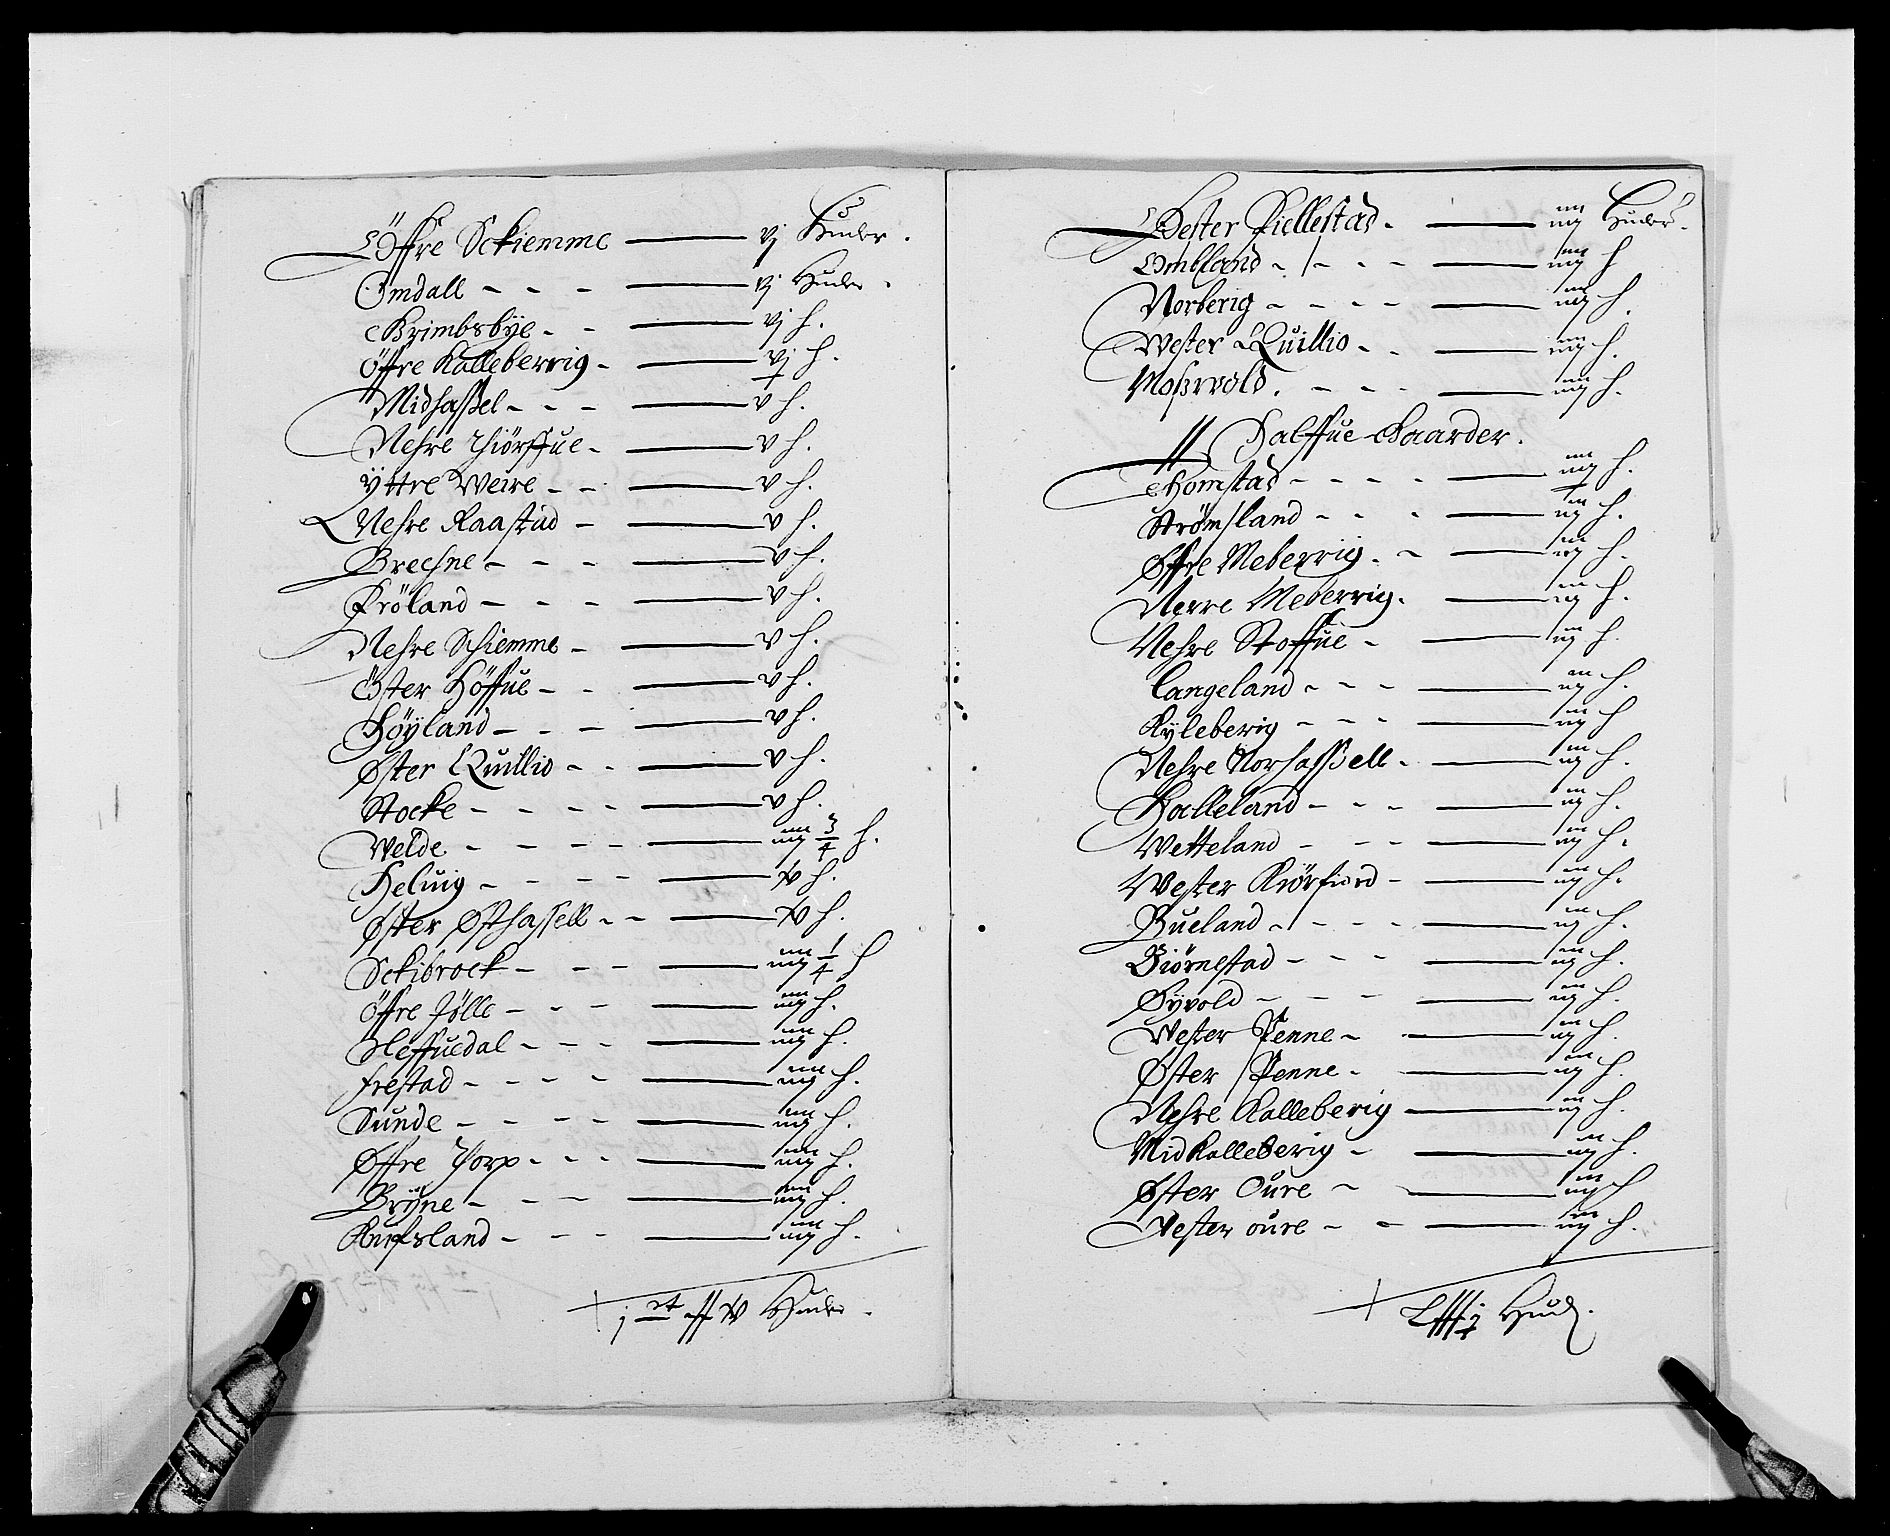 Öffre Sckiemme — vj Huder.
Omdall - - - — vj Huder.
Grimbsbÿe - - — vj h.
Öffre Kalleberrig - — vj h.
Midhassel - - - — v h.
Nehre Thiørffue - — v h.
Ÿttre Weire - - — v h.
Nehre Raastad - — v h.
Brechne - - - — v h.
Frøland - - - — v h.
Nehre Schiemme - — v h.
Öster Höffue - - — v h.
Høÿland - - - — v h.
Øster Quillio - - — v h.
Stocke - - - - — v h.
Welde - - - - — iiij 3/4 h.
Heluig - - - - — h.
Øster Østhassell - - — h.
Sckibrock - - - — iiij 1/4 h
Öffre Jølle - - - — iiij h.
Heffuedal - - - — iiij h.
Frestad - - - - — iiij h.
Sunde - - - - — iiij h.
Øffre Thorp - - - — iiij h.
Brÿne - - - — iiij h.
Knifsland - - - — iiij h.
Huder.
Wester Fiellestad. — iiij Huder.
Ombland - - - - — iiij h
Norberig - - - - — iiij h.
Wester Quillio - - — iiij h.
Mossvold. - - - — iiij h.
Halffue Gaarder.
Homstad - - - - — iiij h.
Strømsland - - - — iij h.
Øffre Meberrig. - — iij h.
Nerre Meberrig. — iij h.
Nehre Stoffue - — iij h
Langeland - - - — iij h.
Kyleberig - - - — iij h
Nehre Norhassell - — iij h.
Halleland - - - — iij h.
Wetteland - - - — iij h.
Wester Kiørfiord - — iij h.
Bueland - - - - — iij h.
Biørnestad - - - — iij h.
Øÿvold - - - — iij h.
Wester Penne - — iij h.
Øster Penne - — iij h.
Nehre Kalleberig — iij h.
Mid Kalleberig - — iij h.
Øster Oure - — iij h
Vester oure - - — iij h.
Hud.